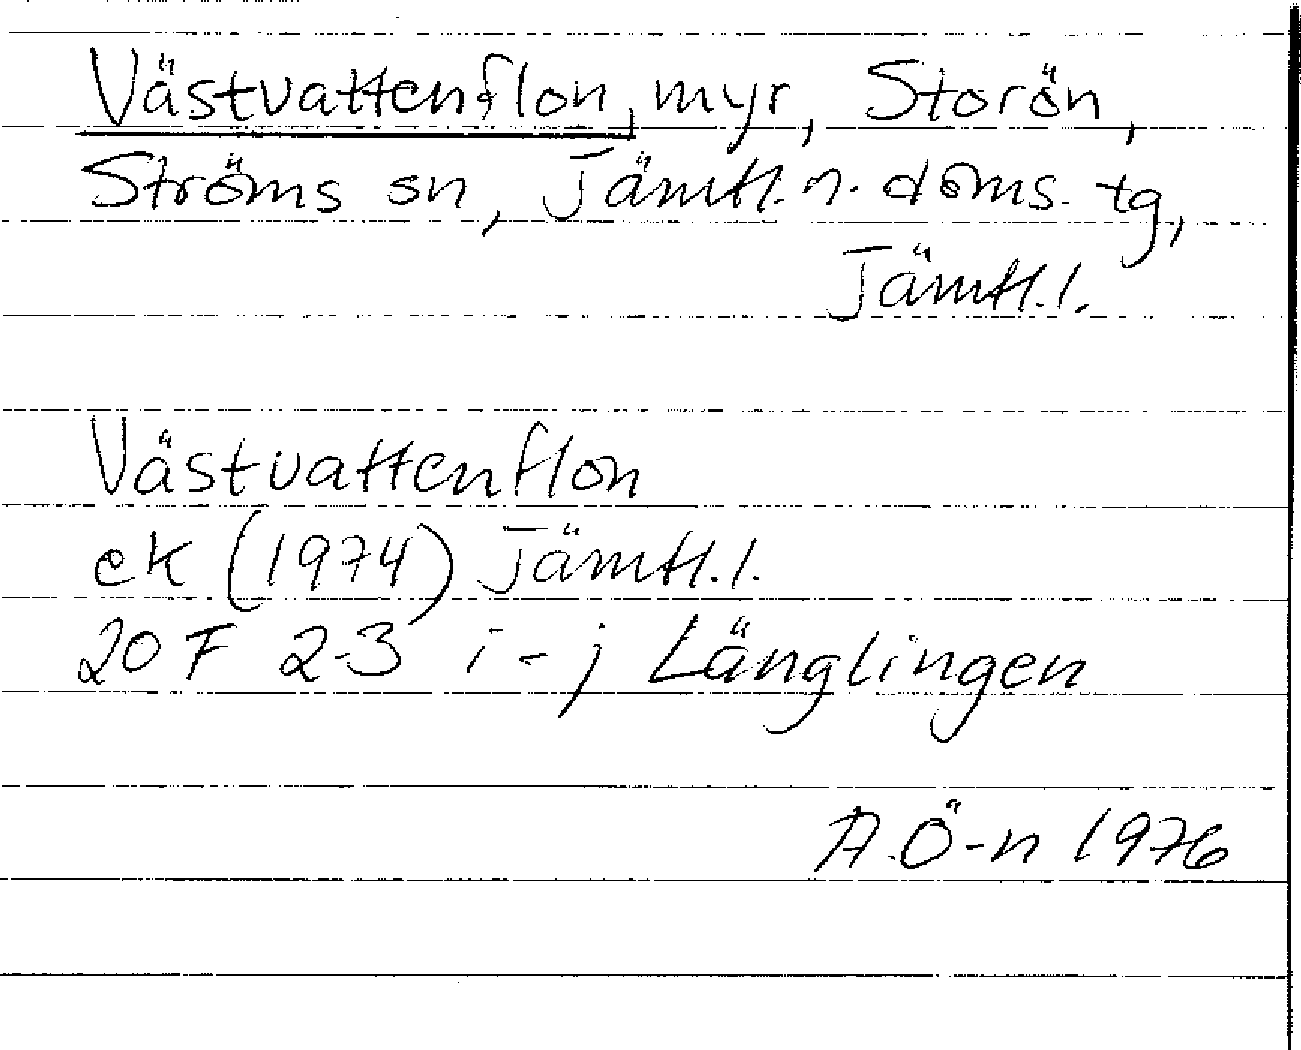 Västvattenflon, myr, Storön,
Ströms sn, Jämtl. n. doms. tg,
Jämtl. l.
Västvattenflon
ek (1974) Jämtl. l.
20 F 2-3 i - j Länglingen
A. Ö-n 1976